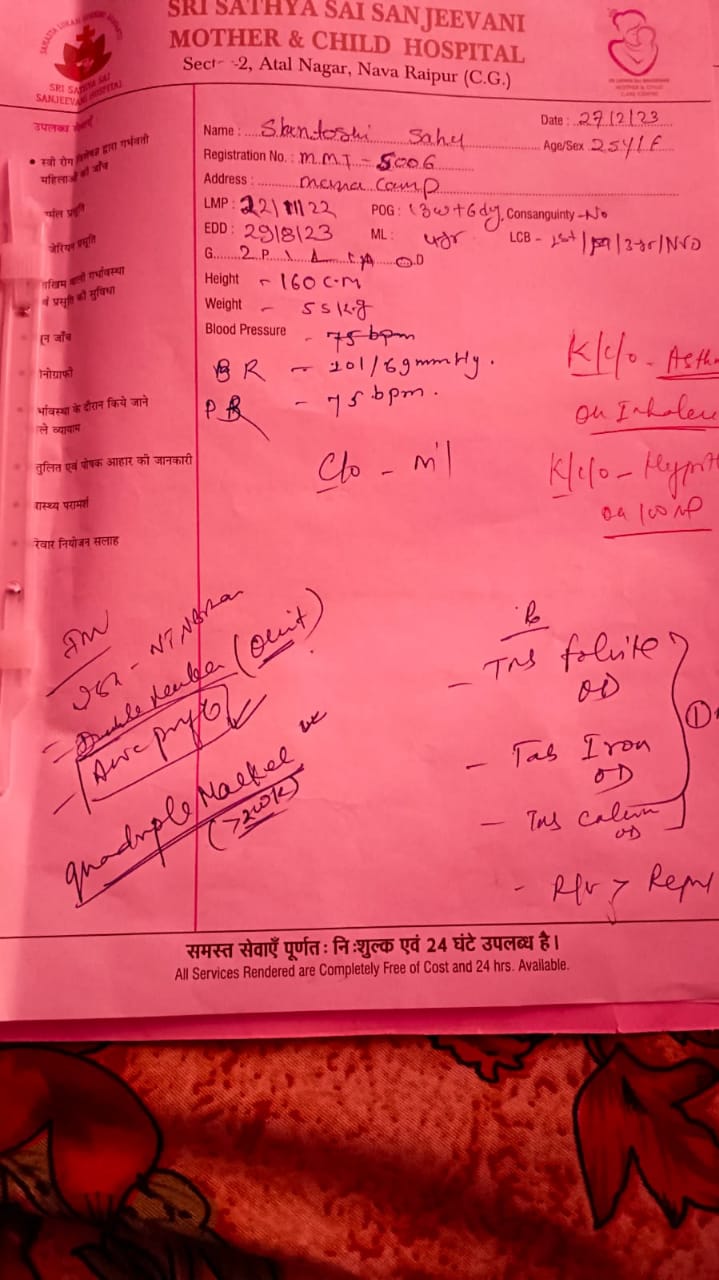 SRI SATHYA SAI SANJEEVANI
MOTHER & CHILD HOSPITAL
Sect- -2, Atal Nagar, Nava Raipur (C.G.)
SRI SATHYA SAI
SANJEEVANI HOSPITAL
Date : 27/2/23
Name : Shentoshi Sahu
Age/Sex 25Y/F
Registration No. : M.M.T - 5006
Address : mana camp
LMP : 22/11/22 POG : 13w+6dy, Consanguinty -No
EDD : 29/8/23 ML : 4yr LCB - 1st/ /3yr/NVD
G 2 P 1 L 1 A 0 D
Height - 160 c.m
Weight - 55kg
Blood Pressure - 75 bpm
BR - 101/69mmHg.
PR - 75 bpm.
K/c/o - Asth
on Inhale
C/o - nil
K/c/o -
on 100
उपलब्ध सेवाएँ
• स्त्री रोग विशेषज्ञ द्वारा गर्भवती
महिलाओं की जाँच
प्रसूति
प्रसूति
गर्भावस्था
प्रसूति की सुविधा
जाँच
के दौरान किये जाने
व्यायाम
एवं पोषक आहार की जानकारी
परामर्श
नियोजन सलाह
Adv
NT NB
Double Marker (Omit)
ANC profile
Quadruple Marker
(>20wk)
Rx
- Tab folvite
OD
- Tab Iron
OD
- Tab Calcium
OD
- R/v
समस्त सेवाएँ पूर्णतः निःशुल्क एवं 24 घंटे उपलब्ध है।
All Services Rendered are Completely Free of Cost and 24 hrs. Available.